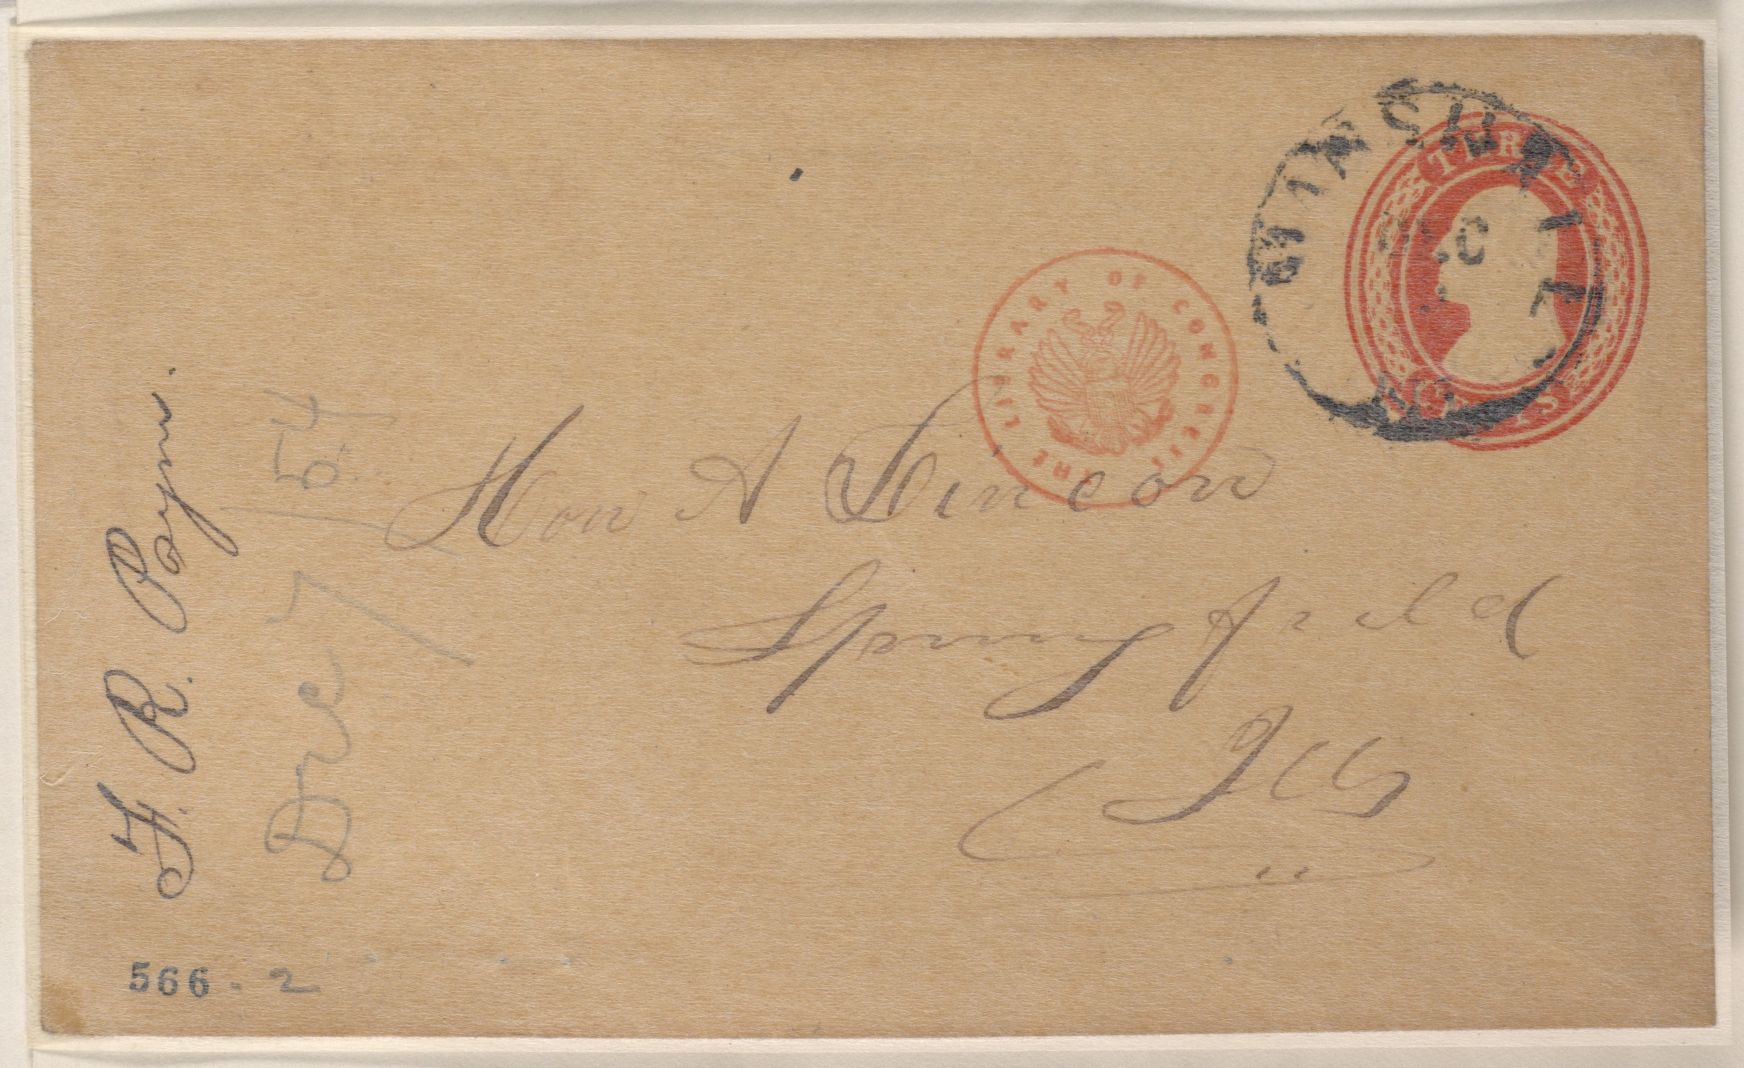 MARSHALL
DEC
THREE
CENTS
THE LIBRARY OF CONGRESS
Hon A Lincoln
Springfield
Ills
F. R. Payne.
Dec 7 / 54
566 - 2